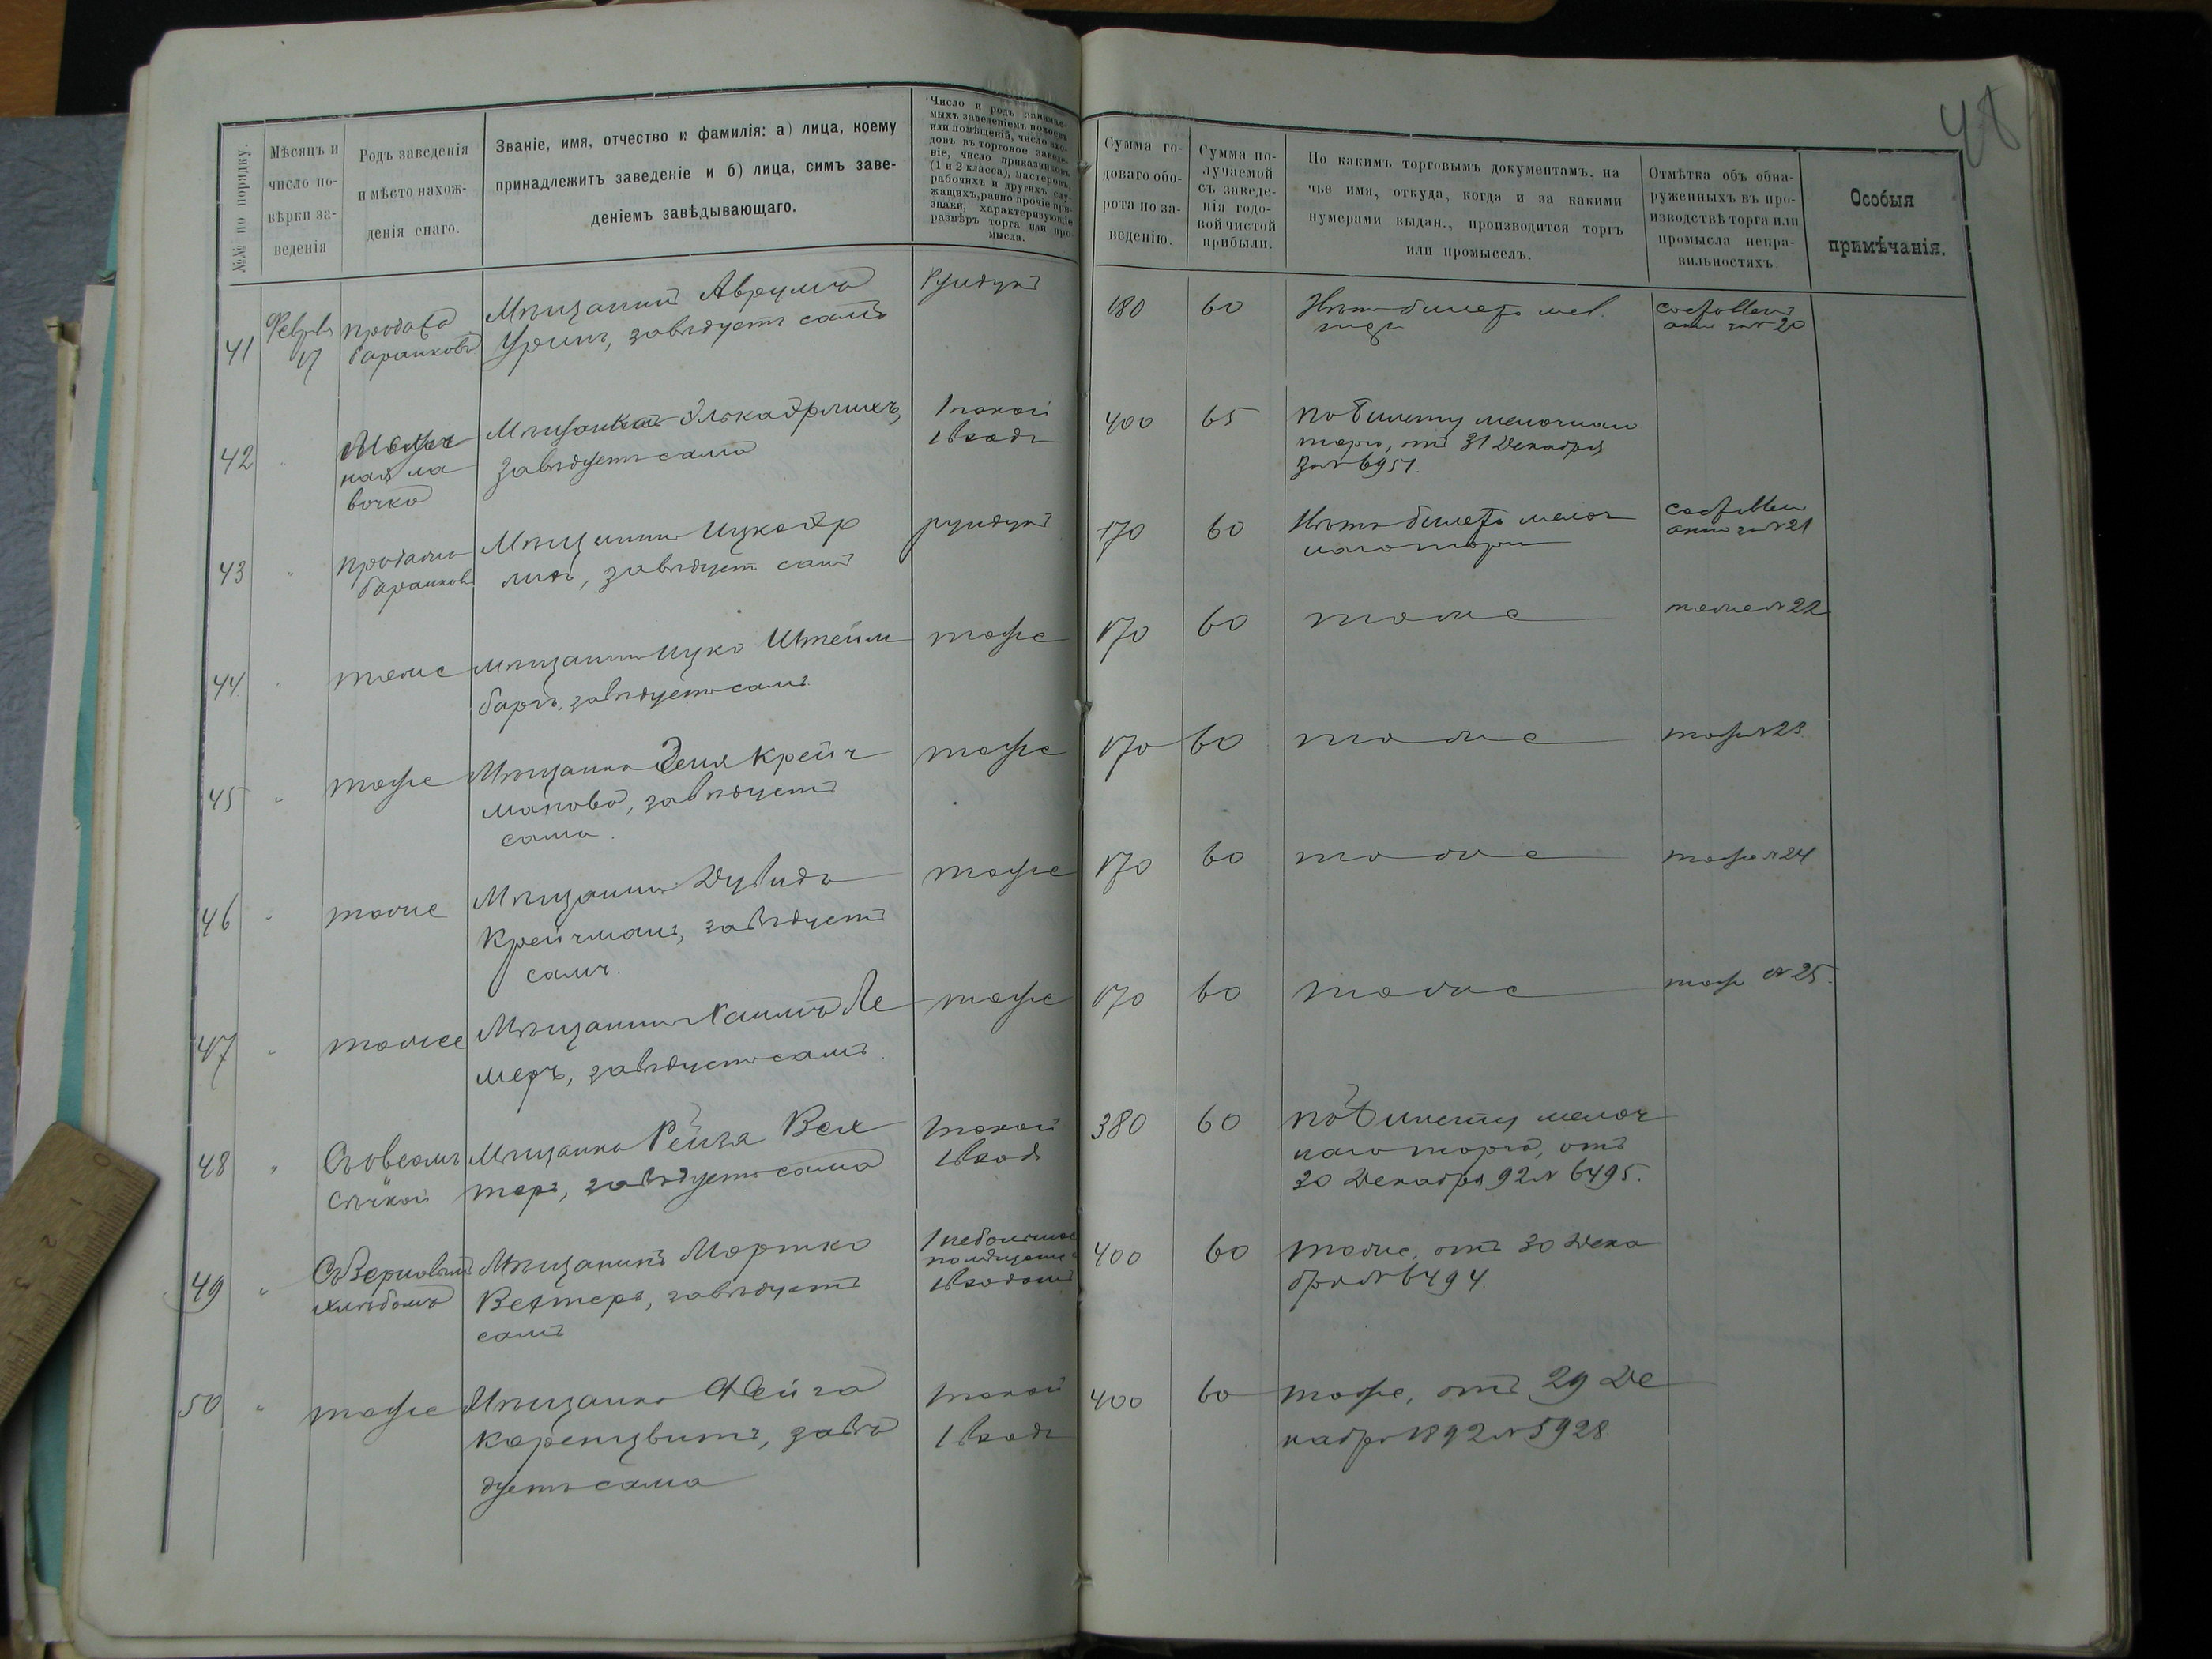 48
№№ по порядку.
Мѣсяцъ и
число по-
вѣрки за-
веденія
Родъ заведенія
и мѣсто нахож-
денія онаго.
Званіе, имя, отчество и фамилія: а) лица, коему
принадлежитъ заведеніе и б) лица, симъ заве-
деніемъ завѣдывающаго.
Число и родъ занимае-
мыхъ заведеніемъ покоевъ
или помѣщеній, число вхо-
довъ въ торговое заведе-
ніе, число приказчиковъ
(1 и 2 класса), мастеровъ,
рабочихъ и другихъ слу-
жащихъ, равно прочіе при-
знаки, характеризующіе
размѣръ торга или про-
мысла.
Сумма го-
доваго обо-
рота по за-
веденію.
Сумма по-
лучаемой
съ заведе-
нія годо-
вой чистой
прибыли.
По какимъ торговымъ документамъ, на
чье имя, откуда, когда и за какими
нумерами выдан., производится торгъ
или промыселъ.
Отмѣтка объ обна-
руженныхъ въ про-
изводствѣ торга или
промысла непра-
вильностяхъ
Особыя
примѣчанія.
41
17
баранковъ
Мѣщанинъ Аврумъ
Уринъ, завѣдуетъ самъ
Рундукъ
180
60
Нѣтъ билета мел.
актъ за № 20
42
Мелоч
ная ла
вочка
завѣдуетъ сама
1 покой
1 входъ
400
65
По билету мелочнаго
торга, отъ 31 Декабря
за № 6951.
43
Продажа
баранковъ
Мѣщанинъ Ицко Эр
лихъ, завѣдует самъ
рундукъ
170
60
Нѣтъ билета мелоч
наго торга
актъ за № 21
44
тоже
Мѣщанинъ Ицко Штейн
баргъ, завѣдуетъ самъ
тоже
170
60
тоже
тоже № 22
45
тоже
Мѣщанка Эня Крейч
манова, завѣдуетъ
сама.
тоже
170
60
тоже
тоже № 23
46
тоже
Мѣщанинъ Дувидъ
Крейчманъ, завѣдуетъ
самъ.
тоже
170
60
тоже
тоже № 24
47
тоже
Мѣщанинъ Хаимъ Ле
меръ, завѣдуетъ самъ
тоже
170
60
тоже
тоже № 25.
48
Съ овсомъ
сѣчкой
Мѣщанка Рейза Вех
теръ, завѣдуетъ сама
1 покой
1 входъ
380
60
По билету мелоч
наго торга, отъ
30 Декабря 92 № 6495.
49
Съ зерновымъ
хлѣбомъ
Мѣщанинъ Моршко
Вехтеръ, завѣдуетъ
самъ
1 небольшое
помѣщеніе
1 входомъ
400
60
тоже, отъ 30 Дека
бря № 6494.
50
тоже
Мѣщанка Фейга
Коренцвитъ, завѣ
дуетъ сама
1 покой
1 входъ
400
60
тоже, отъ 29 Де
кабря 1892 № 5928